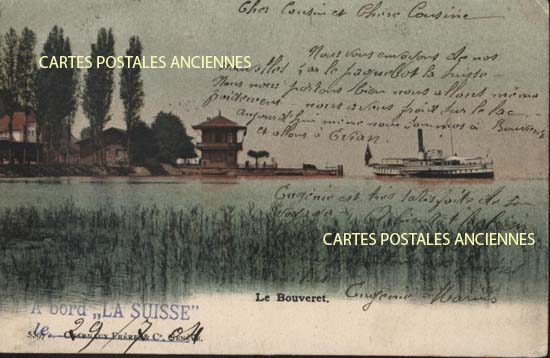 Cher Cousin et Chère Cousine
Nous vous envoyons de nos
nouvelles par le paquebot la Suisse
CARTES POSTALES ANCIENNES
Nous nous portons bien nous allons même
froidement nous avions froid sur le lac
Aujourd'hui même nous sommes à Bouveret
et allons à Evian
Eugénie est très satisfaite de son
CARTES POSTALES ANCIENNES
Le Bouveret.
Eugénie
A bord „LA SUISSE"
le 29/7 04
CHARNAUX FRÈRES & Cº, GENÈVE.